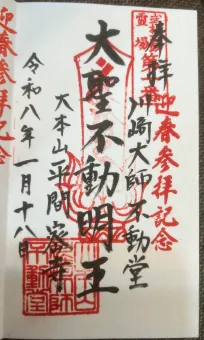 奉拝
武相不動尊
霊場 第一番
迎春参拝記念
川崎大師不動堂
大聖不動明王
大本山平間寺
令和八年一月十八日
迎春参拝記念